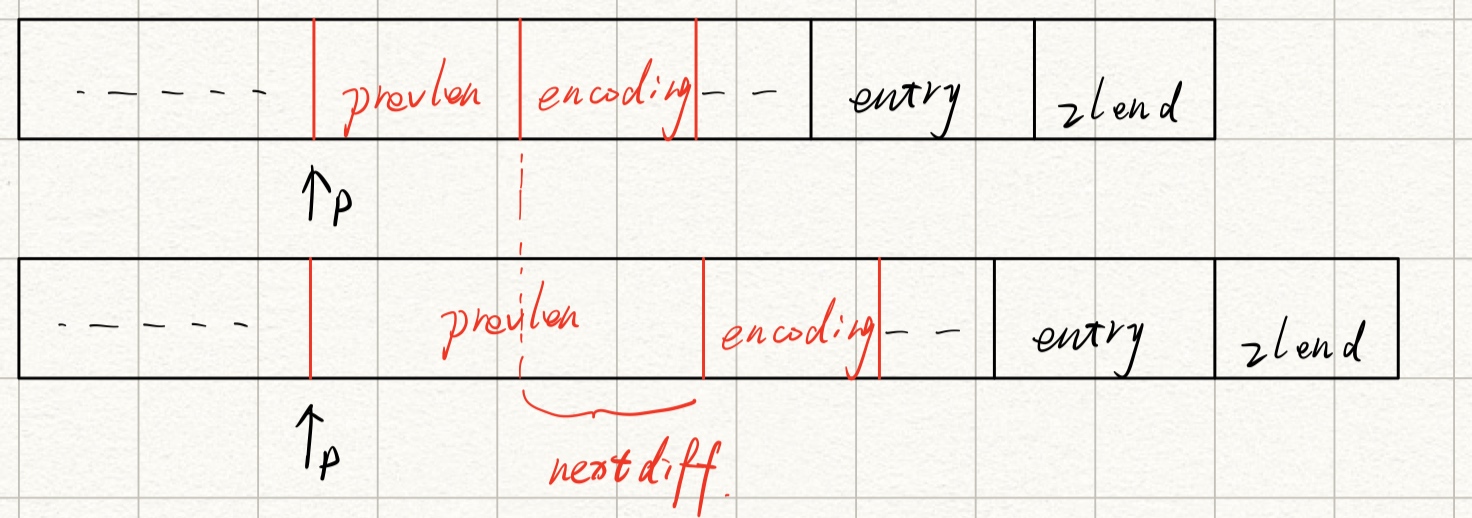 prevlen encoding entry zlend
p
prevlen encoding entry zlend
p
nextdiff.